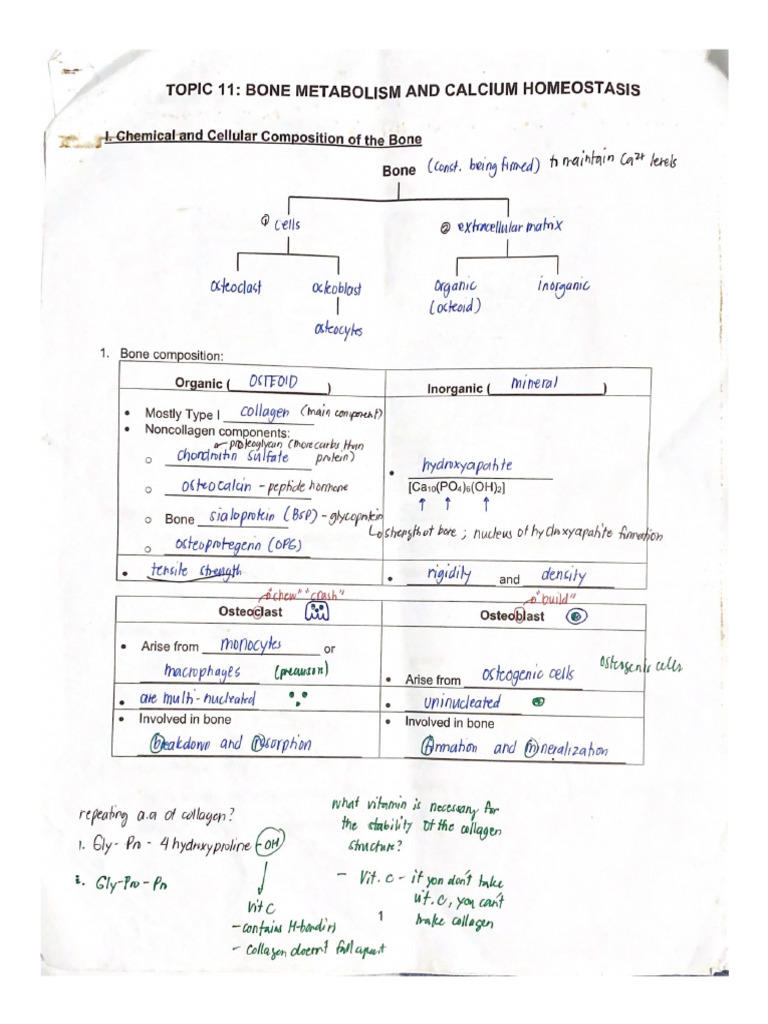 TOPIC 11: BONE METABOLISM AND CALCIUM HOMEOSTASIS
I. Chemical and Cellular Composition of the Bone
Bone (const. being formed) to maintain Ca2+ levels
① cells
② extracellular matrix
osteoclast osteoblast organic inorganic
(osteoid)
osteocytes
1. Bone composition:
Organic ( OSTEOID ) Inorganic ( mineral )
• Mostly Type I collagen (main component)
• Noncollagen components:
proteoglycan (more carbs than
○ chondroitin sulfate protein)
• hydroxyapatite
[Ca10(PO4)6(OH)2]
○ osteocalcin - peptide hormone
○ Bone sialoprotein (BSP) - glycoprotein
↳ strength of bone ; nucleus of hydroxyapatite formation
○ osteoprotegerin (OPG)
• tensile strength
• rigidity and density
"chew" "crash" "build"
Osteoclast Osteoblast
• Arise from monocytes or
macrophages (precursor)
• Arise from osteogenic cells
Osteogenic cells
• are multi-nucleated • uninucleated
• Involved in bone • Involved in bone
breakdown and resorption formation and mineralization
repeating a.a of collagen?
1. Gly - Pro - 4 hydroxyproline -OH
2. Gly-Pro-Pro
Vit C
- contains H-bonding
- collagen doesn't fall apart
What vitamin is necessary for
the stability of the collagen
structure?
- Vit. C - if you don't take
vit. C, you can't
make collagen
1